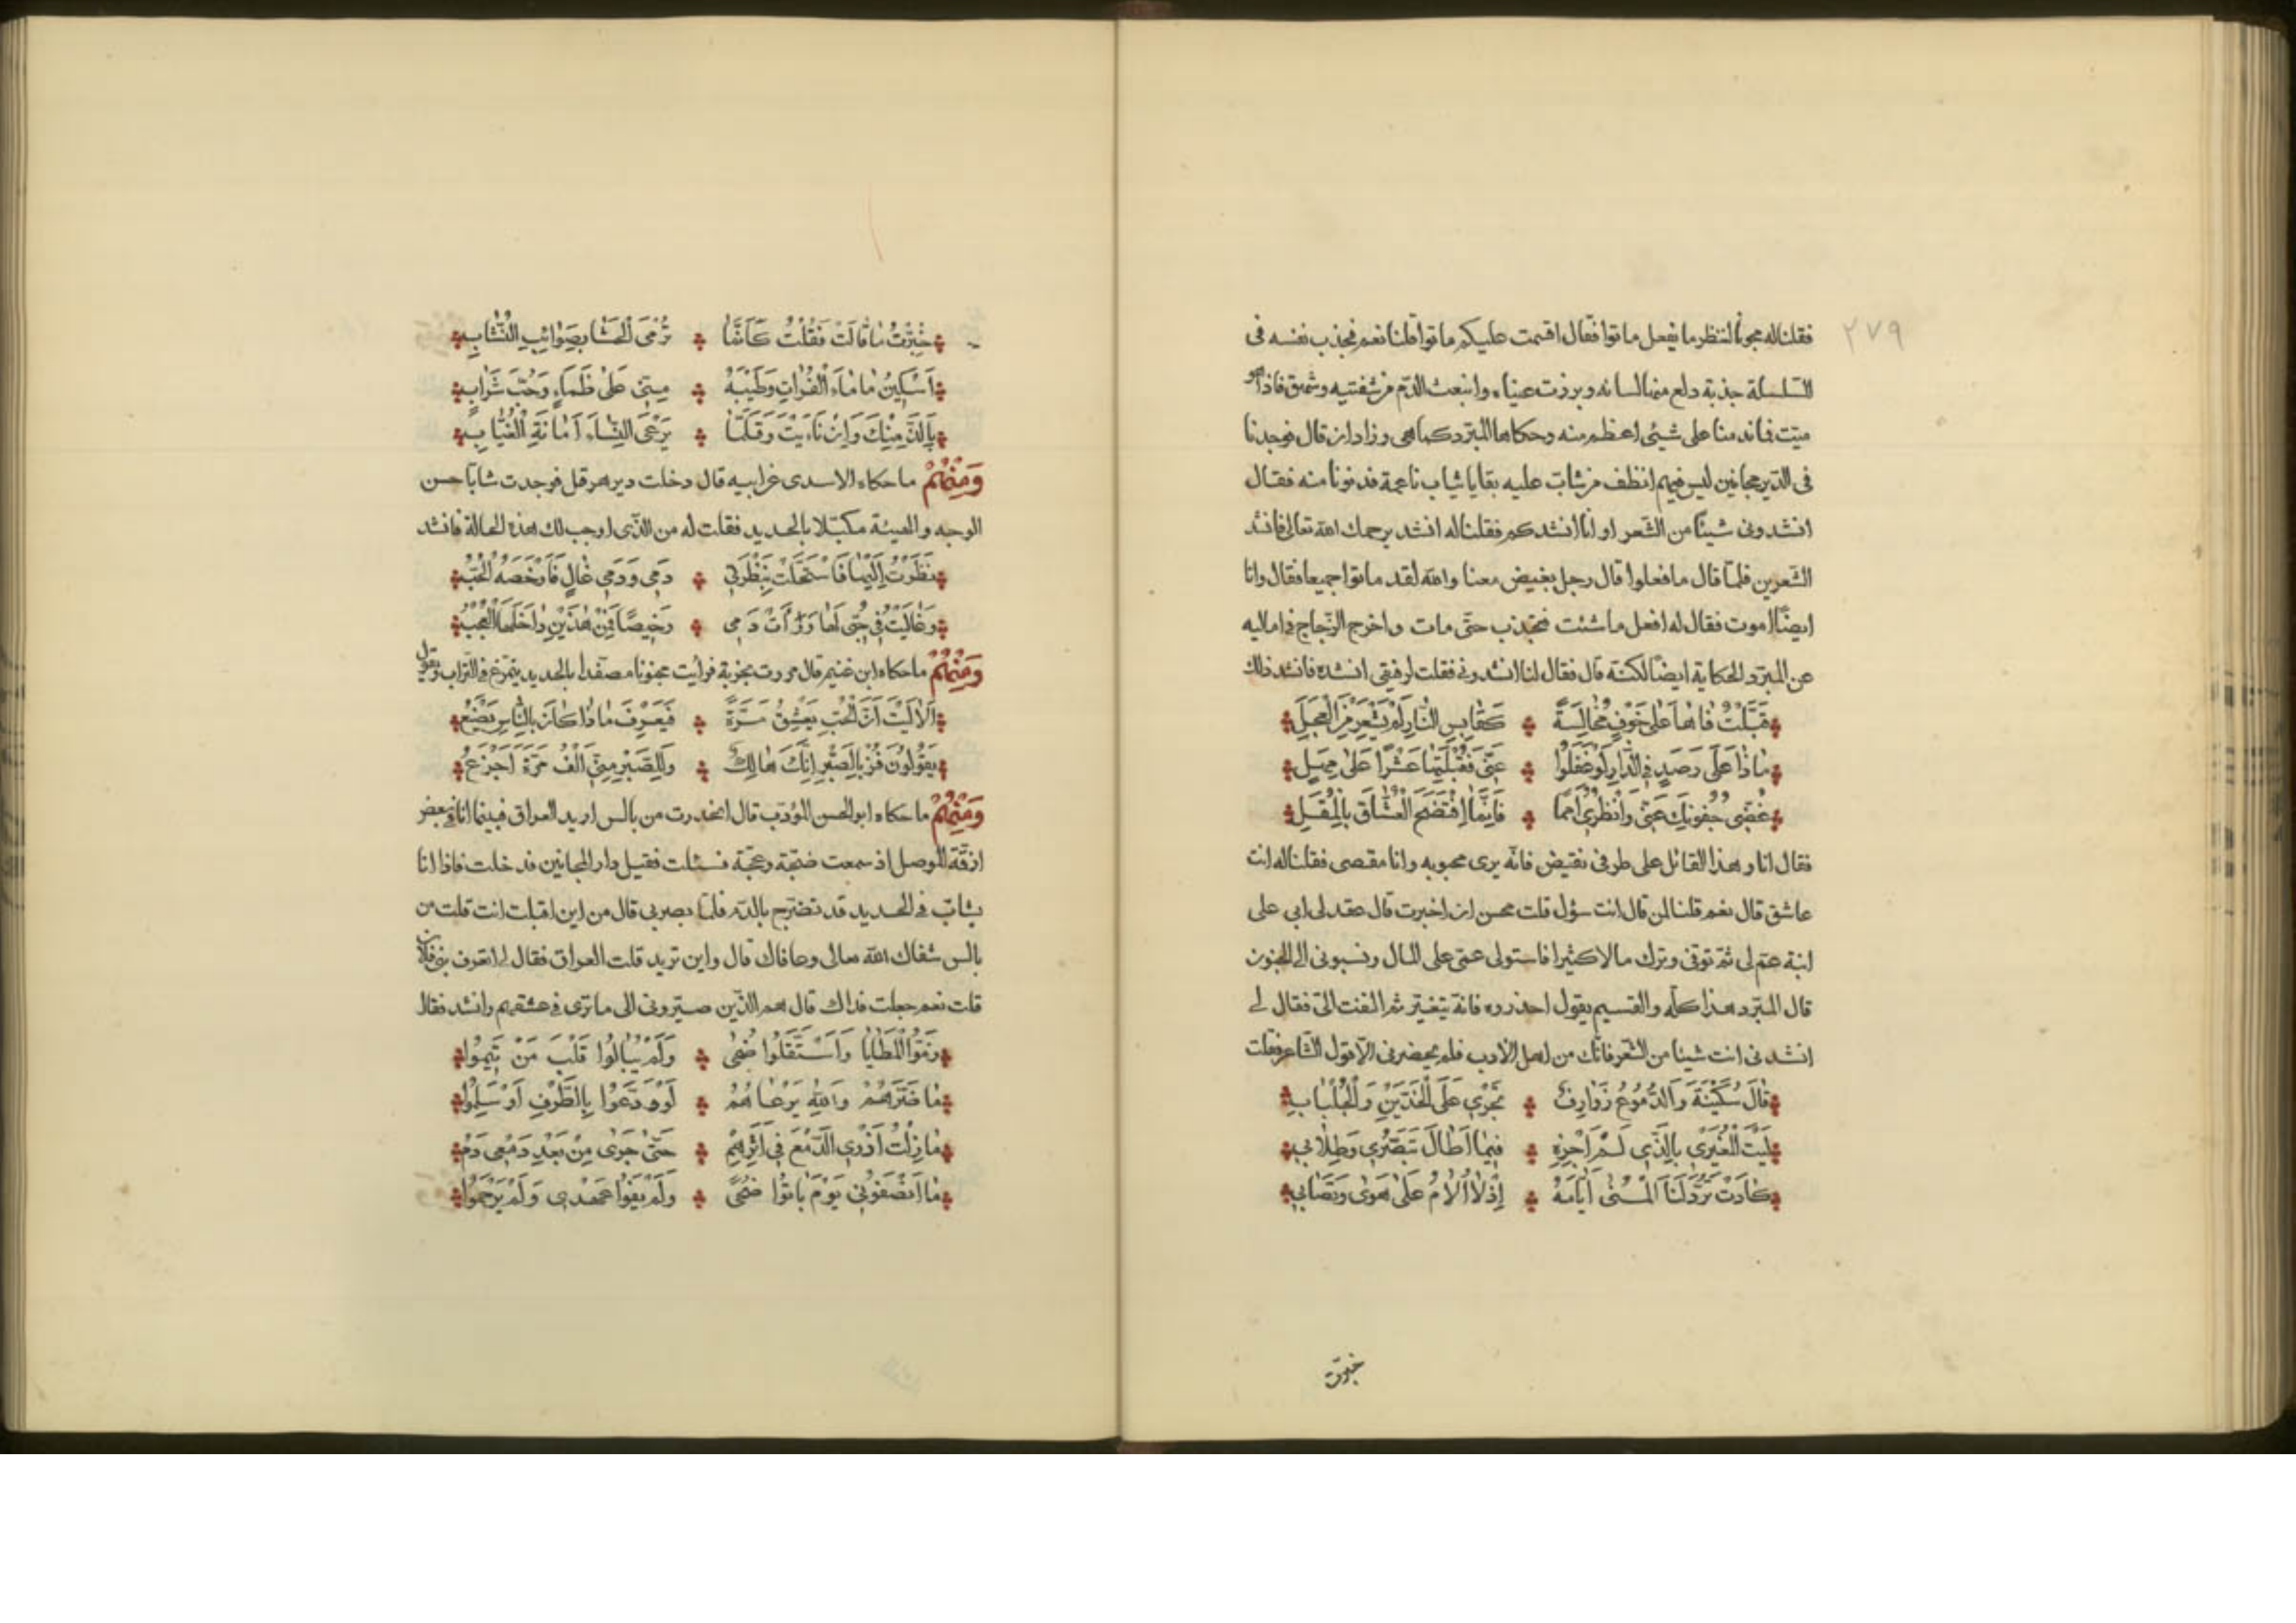 ٢٧٩
فقلنا له مجونا لننظر ما يفعل ماتوا فقال اقسمت عليكم ماتوا قلنا نعم فجذب نفسه فى
السلسلة جذبة دلع منها لسانه وبرزت عيناه وانبعث الدّم من شفتيه وشهق فاذا هو
ميّت فما ندمنا على شيئ اعظم منه وحكاها المبرّد كما هى وزاد ان قال فوجدنا
فى الدّير مجانين ليس فيهم انظف من شابّ عليه بقايا ثياب ناعمة فدنونا منه فقال
انشدونى شيئًا من الشّعر او انا انشدكم فقلنا له انشد يرحمك الله تعالى فانشد
الشّعرين فلمّا قال ما فعلوا قال رجل بغيض معنا والله لقد ماتوا جميعا فقال وانا
ايضًا اموت فقال له افعل ما شئت فجذب حتّى مات واخرج الزّجاج فى اماليه
عن المبرّد الحكاية ايضًا لكنّه قال فقال لنا انشدونى فقلت لرفيقى انشده فانشد ذلك
قَبَّلْتُ فَاهَا عَلَى خَوْفٍ مُخَالِسَةً كَقَابِسِ النَّارِ لَمْ يَشْعُرْ مِنَ الْعَجَلِ
مَاذَا عَلَى رَصَدٍ فِى الدَّارِ لَوْ غَفَلُوا عَنِّى فَقَبَّلْتُهَا عَشْرًا عَلَى مَهَلٍ
غُضِّى جُفُونَكِ عَنِّى وَانْظُرِى اَمَمًا فَاِنَّمَا افْتَضَحَ الْعُشَّاقُ بِالْمُقَلِ
فقال انا وهذا القائل على طرفى نقيض فانّه يرى محبوبه وانا مقصى فقلنا له انت
عاشق قال نعم قلنا لمن قال انت سؤل قلت محسن ان اخبرت قال عقد لى ابى على
ابنة عمّ لى ثمّ توفى وترك مالا كثيرا فاستولى عمّى على المال ونسبونى الى الجنون
قال المبرّد هذا كلّه والقسيم يقول احذروه فانّه يتغيّر ثم التفت الىّ فقال لى
انشدنى انت شيئا من الشّعر فانّك من اهل الادب فلم يحضرنى الّا قول الشّاعر فقلت
قَالَ سُكَيْنَةُ وَالدُّمُوعُ ذَوَارِفٌ تَجْرِى عَلَى الْخَدَّيْنِ وَالْجُلْبَابِ
لَيْتَ الْمُغِيرِى بِالَّذِى لَمْ اَجْزِهِ فِيمَا اَطَالَ تَصَبُّرِى وَطِلَابِى
كَادَتْ تَرُدُّ لَنَا الْمُنَى اَيَّامَهُ اِذْ لَا اُلَامُ عَلَى هَوًى وَتَصَابِى
خبرت
خُبِّرْتُ مَا قَالَتْ فَقُلْتُ كَاَنَّمَا تُرْمَى الْحَشَا بِصَوَائِبِ النُّشَّابِ
اَسُكَيْنُ مَا مَاءُ الْفُرَاتِ وَطِيبُهُ مِنِّى عَلَى ظَمَاءٍ وَحُبِّ شَرَابِ
بِاَلَذَّ مِنْكَ وَاِنْ نَاَيْتَ وَقَلَّمَا يَرْعَى النِّسَاءُ اَمَانَةَ الْغُيَّابِ
وَمِنْهُمْ ما حكاه الاسدى عن ابيه قال دخلت دير هرقل فوجدت شابّا حسن
الوجه والهيئة مكبّلا بالحديد فقلت له من الذّى اوجب لك هذه الحالة فانشد
نَظَرْتُ اِلَيْهَا فَاسْتَحَلَّتْ بِنَظْرَتِى دَمِى وَدَمِى غَالٍ فَاَرْخَصَهُ الْحُبُّ
وَغَالَيْتُ فِى حُبِّى لَهَا وَرَأَتْ دَمِى رَخِيصًا فَمِنْ هٰذَيْنِ دَاخَلَهَا الْعُجْبُ
وَمِنْهُمْ ما حكاه ابن غنيم قال مررت بخربة فرايت مجنونا مصفّدا بالحديد يتمرّغ فى التّراب ويقول
اَلَا لَيْتَ اَنَّ الْحُبَّ يَعْشَقُ مَرَّةً فَيَعْرِفَ مَاذَا كَانَ بِالنَّاسِ يَصْنَعُ
يَقُولُونَ فُزْ بِالصَّبْرِ اِنَّكَ هَالِكٌ وَلَلصَّبْرُ مِنِّى اَلْفَ مَرَّةٍ اَجْزَعُ
وَمِنْهُمْ ما حكاه ابو الحسن المؤدّب قال انحدرت من بالس اريد العراق فبينما انا فى بعض
ازقّة الموصل اذ سمعت ضجّة وعجّة فسئلت فقيل دار المجانين فدخلت فاذا انا
بشابّ فى الحديد قد تضرّج بالدّم فلمّا بصر بى قال من اين اقبلت انت قلت من
بالس شفاك الله تعالى وعافاك قال واين تريد قلت العراق فقال لى اتعرف بنى فلان
قلت نعم جعلت فداك قال هم الذّين صيّرونى الى ما ترى فى عشقهم وانشد فقال
زَمُّوا الْمَطَايَا وَاسْتَقَلُّوا ضُحًى وَلَمْ يُبَالُوا قَلْبَ مَنْ تَيَّمُوا
مَا ضَرَّهُمْ وَاللهُ يَرْعَاهُمُ لَوْ وَدَّعُوا بِالطَّرْفِ اَوْ سَلَّمُوا
مَا زِلْتُ اُذْرِى الدَّمْعَ فِى اَثْرِهِمْ حَتَّى جَرَى مِنْ بَعْدِ دَمْعِى دَمُ
مَا اَنْصَفُونِى يَوْمَ بَانُوا ضُحًى وَلَمْ يَفُوا عَهْدِى وَلَمْ يَرْحَمُوا